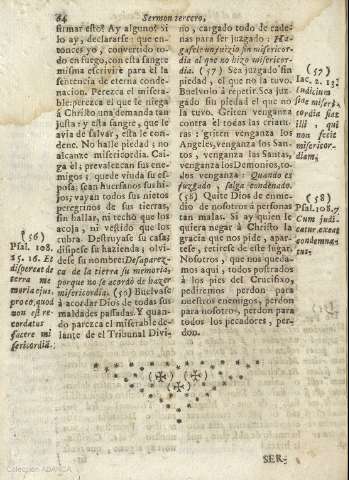 64 Sermon tercero,
sumar esto? Ay alguno? si
lo ay, declararse: que en-
tonces yo, convertido todo
do en fuego, con esta sangre
misma escrivirè para èl la
sentencia de eterna conde-
nacion. Perezca el misera-
ble: perezca el que le niega
à Christo una demanda tan
justa: y esta sangre, que le
avia de salvar, esta le con-
dene. No halle piedad; no
alcanze misericordia. Cai-
ga èl; prevalezcan sus ene-
migos; quede viuda su espo-
sa; sean huerfanos sus hi-
jos; vayan todos sus nietos
peregrinos de sus tierras,
sin hallar, ni techo que los
acoja, ni vestido que los
cobra. Destruyase su casa;
disipese su hazienda; olvi-
dese su nombre: Desaparez-
ca de la tierra su memoria,
porque no se acordò de hazer
misericordia. (56) Buelvase
à acordar Dios de todas sus
maldades passadas. Y quan-
do parezca el miserable de-
lante de el Tribunal Divi-
(56)
Psal. 108.
15. 16. Et
dispereat de
terra me
moria ejus,
pro eo, quod
non est re-
cordatus
facere mi
sericordiã.
no, cargado todo de cade-
nas para ser juzgado: Ha-
gasele un juizio sin misericor-
dia al que no hizo misericor-
dia. (57) Sea juzgado sin
piedad, el que no la tuvo.
Buelvolo à repetir. Sea juz-
gado sin piedad el que no
la tuvo. Griten venganza
contra èl todas las criatu-
ras: griten venganza los
Angeles, venganza los San-
tos, venganza las Santas,
venganza los Demonios, to-
dos venganza: Quando es
juzgado, salga condenado.
(58) Quite Dios de enme-
dio de nosotros à personas
tan malas. Si ay quien le
quiera negar à Christo la
gracia que nos pide, apar-
tese, retirese de este lugar.
Nosotros, que nos queda-
mos aqui, todos postrados
à los pies del Crucifixo,
pedirèmos perdon para
nuestros enemigos, perdon
para nosotros, perdon para
todos los pecadores, per-
don.
(57)
Iac. 2. 13.
Iudicium
sine miseri-
cordia fiat
illi, qui
non fecit
misericor-
diam.
(58)
Psal. 108. 7
Cum judi-
catur, exeat
condemna-
tus.
SER-
Colección ADABICA